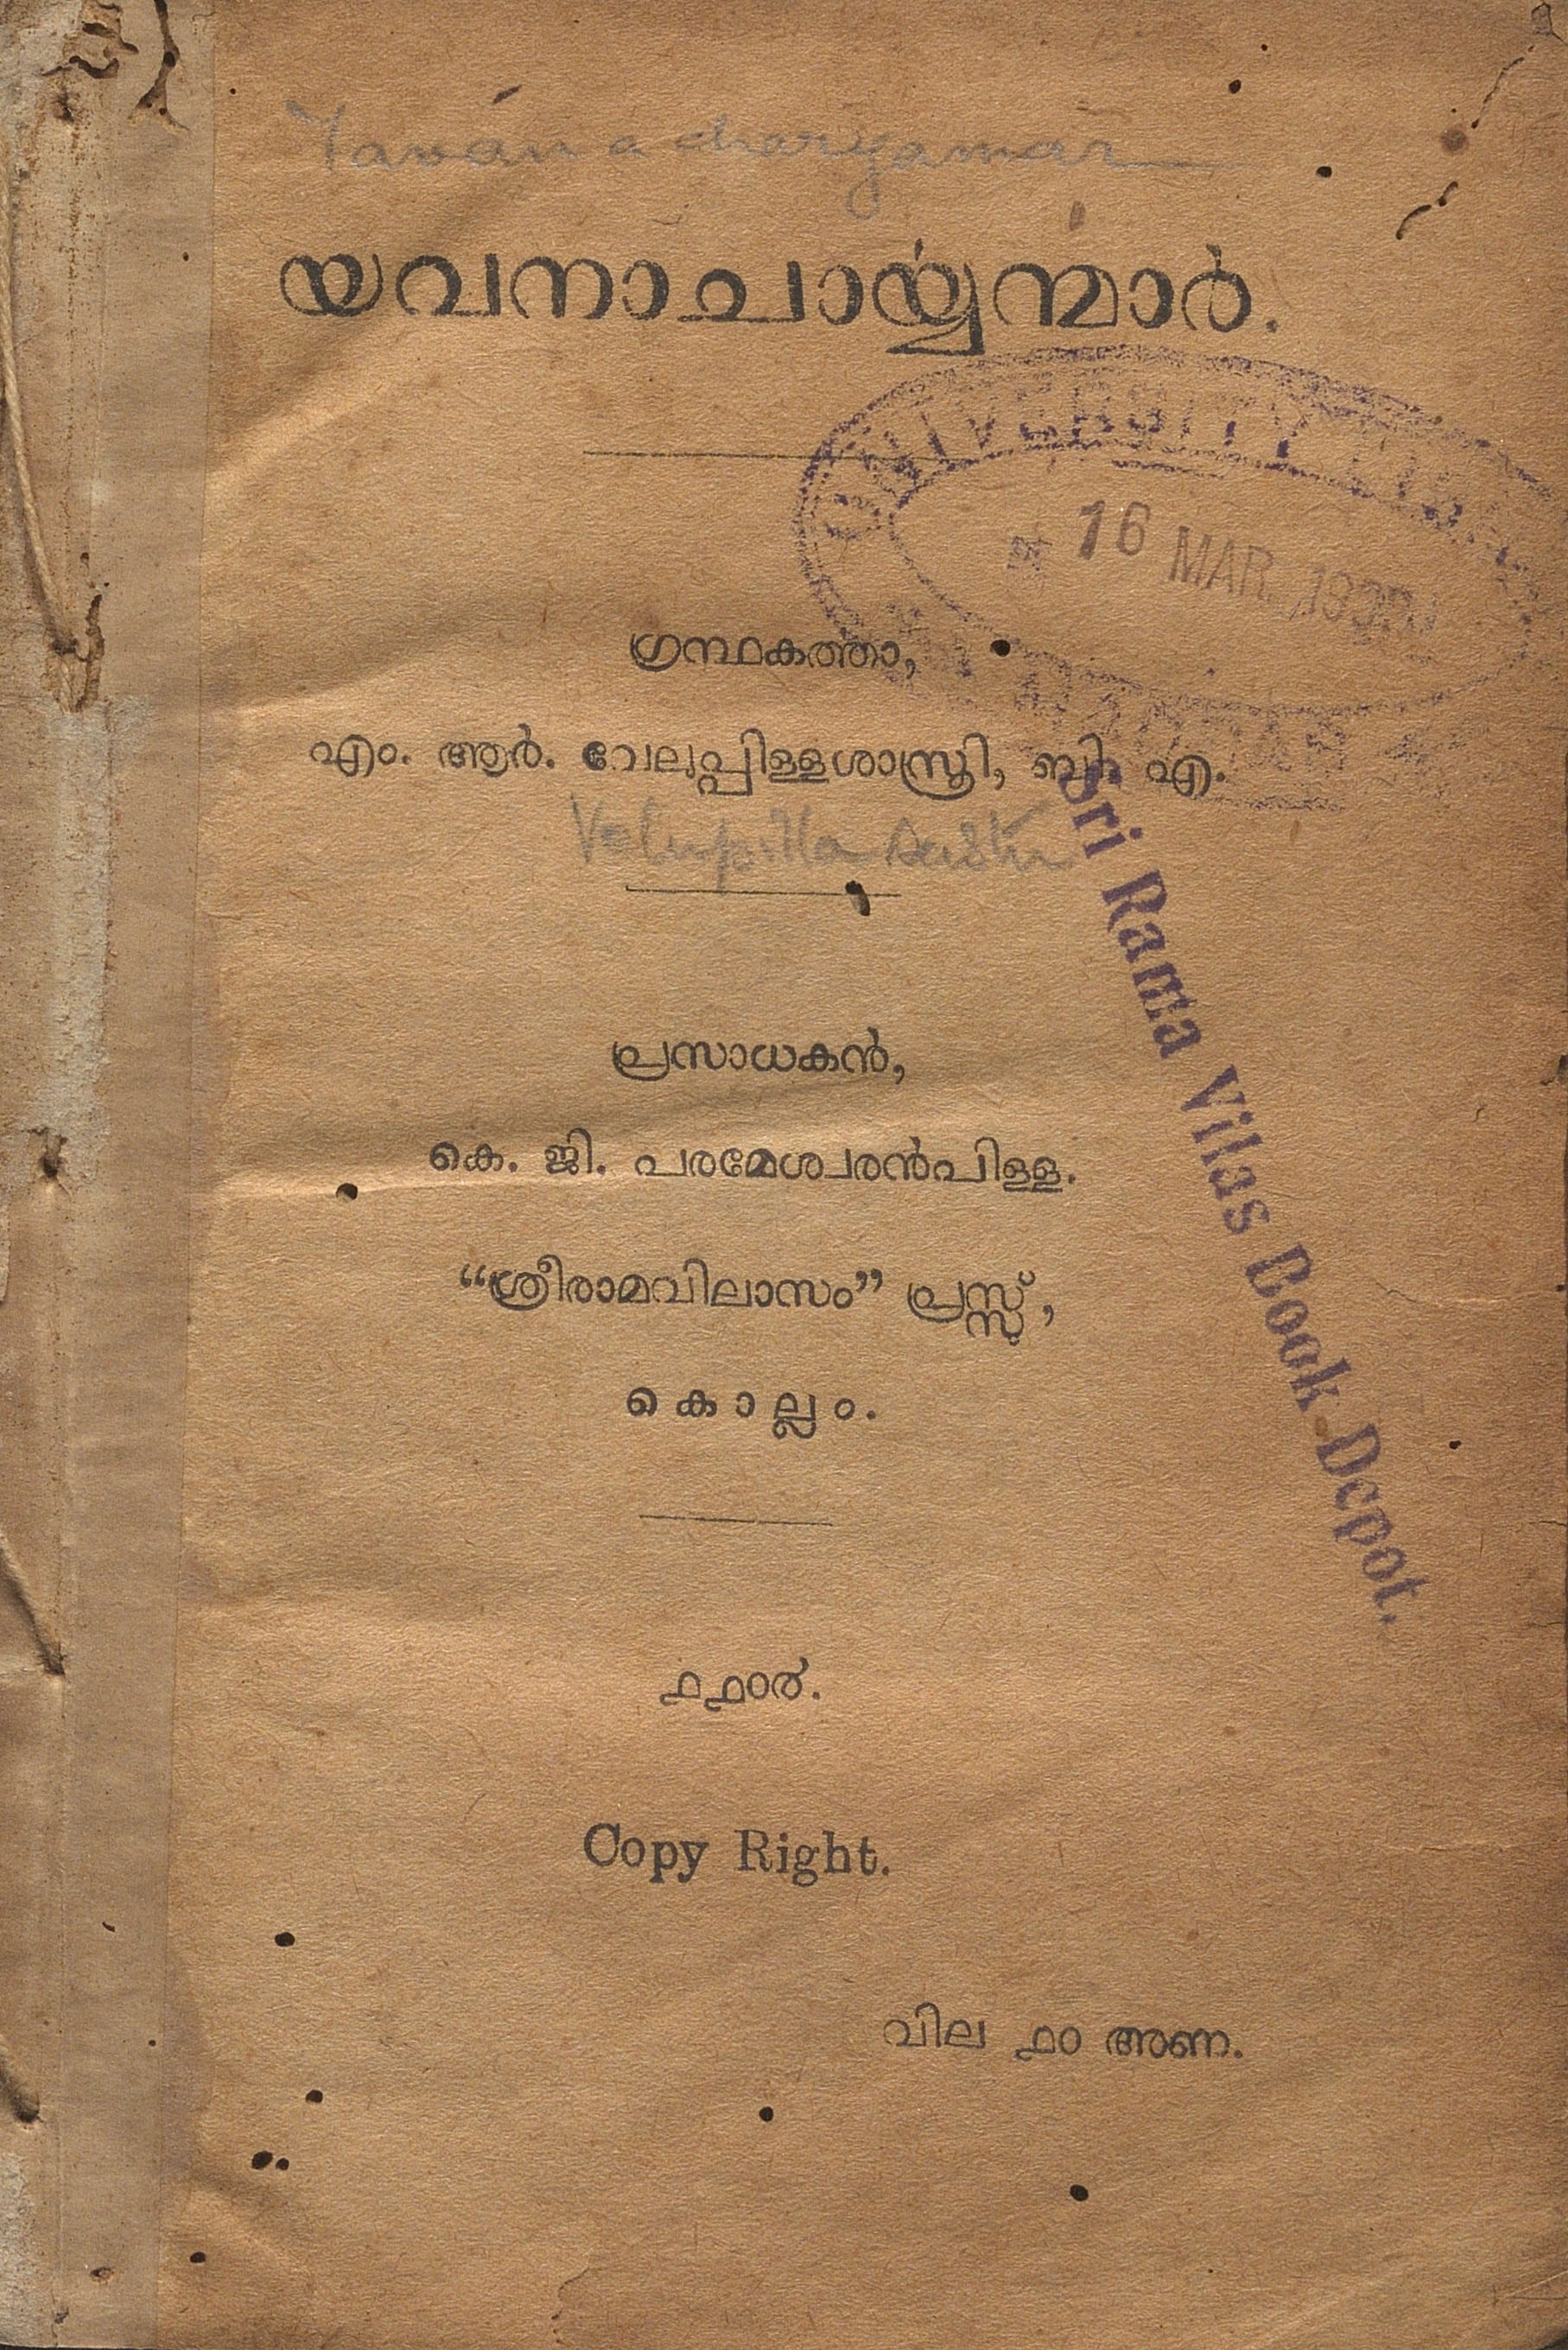 Yavanacharyamar
യവനാചാൎയ്യന്മാർ.
UNIVERSITY
16 MAR
MADRAS
ഗ്രന്ഥകൎത്താ,
എം. ആർ. വേലുപ്പിള്ളശാസ്ത്രി, ബി. എ.
Velupilla Sastri
Sri Rama Vilas Book Depot.
പ്രസാധകൻ,
കെ. ജി. പരമേശ്വരൻപിള്ള.
“ശ്രീരാമവിലാസം” പ്രസ്സ്,
കൊല്ലം.
൧൧൦൪.
Copy Right.
വില ൧൦ അണ.